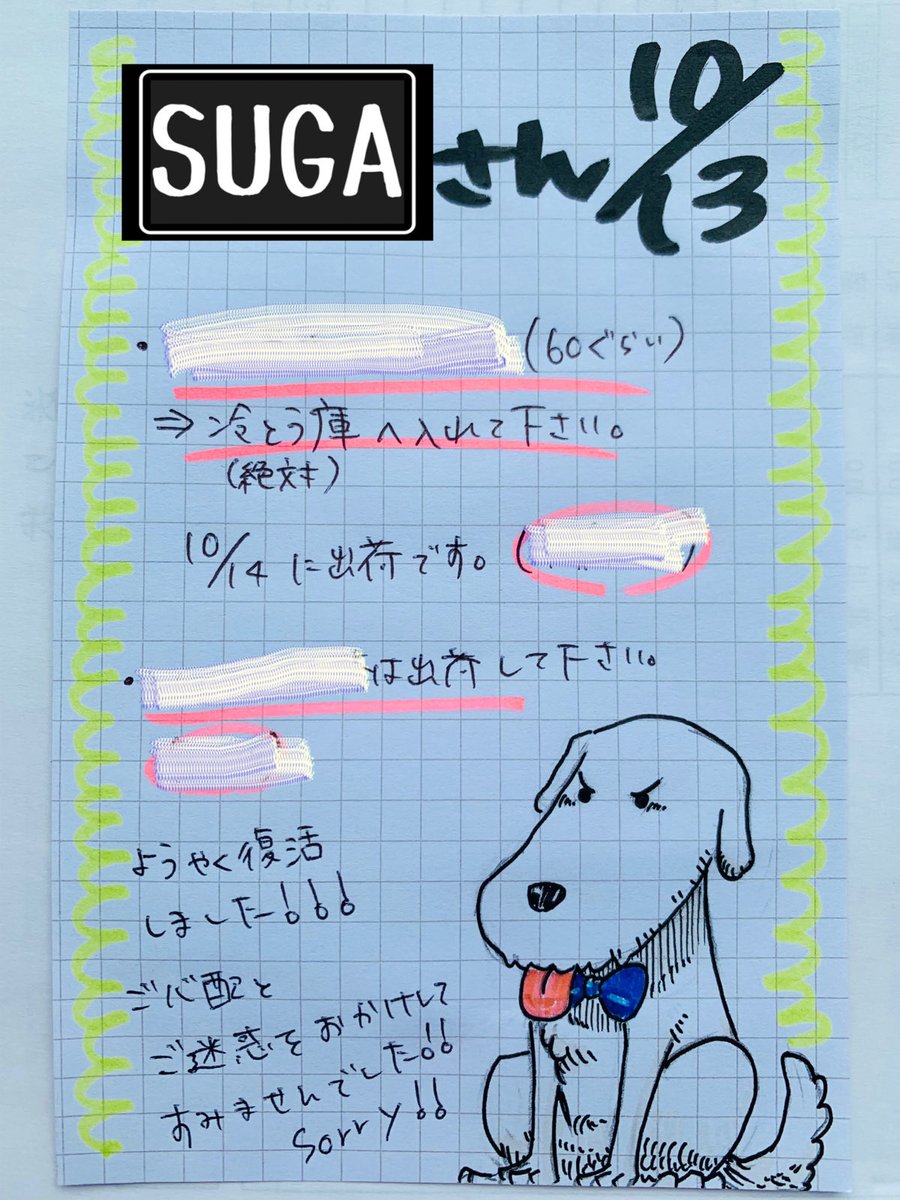 SUGAさん 10/13
・ (60ぐらい)
⇒ 冷とう庫へ入れて下さい。
(絶対)
10/14 に出荷です。(  )
・ は出荷して下さい。
ようやく復活
しました!!!
ご心配と
ご迷惑をおかけして
すみませんでした!!
sorry!!